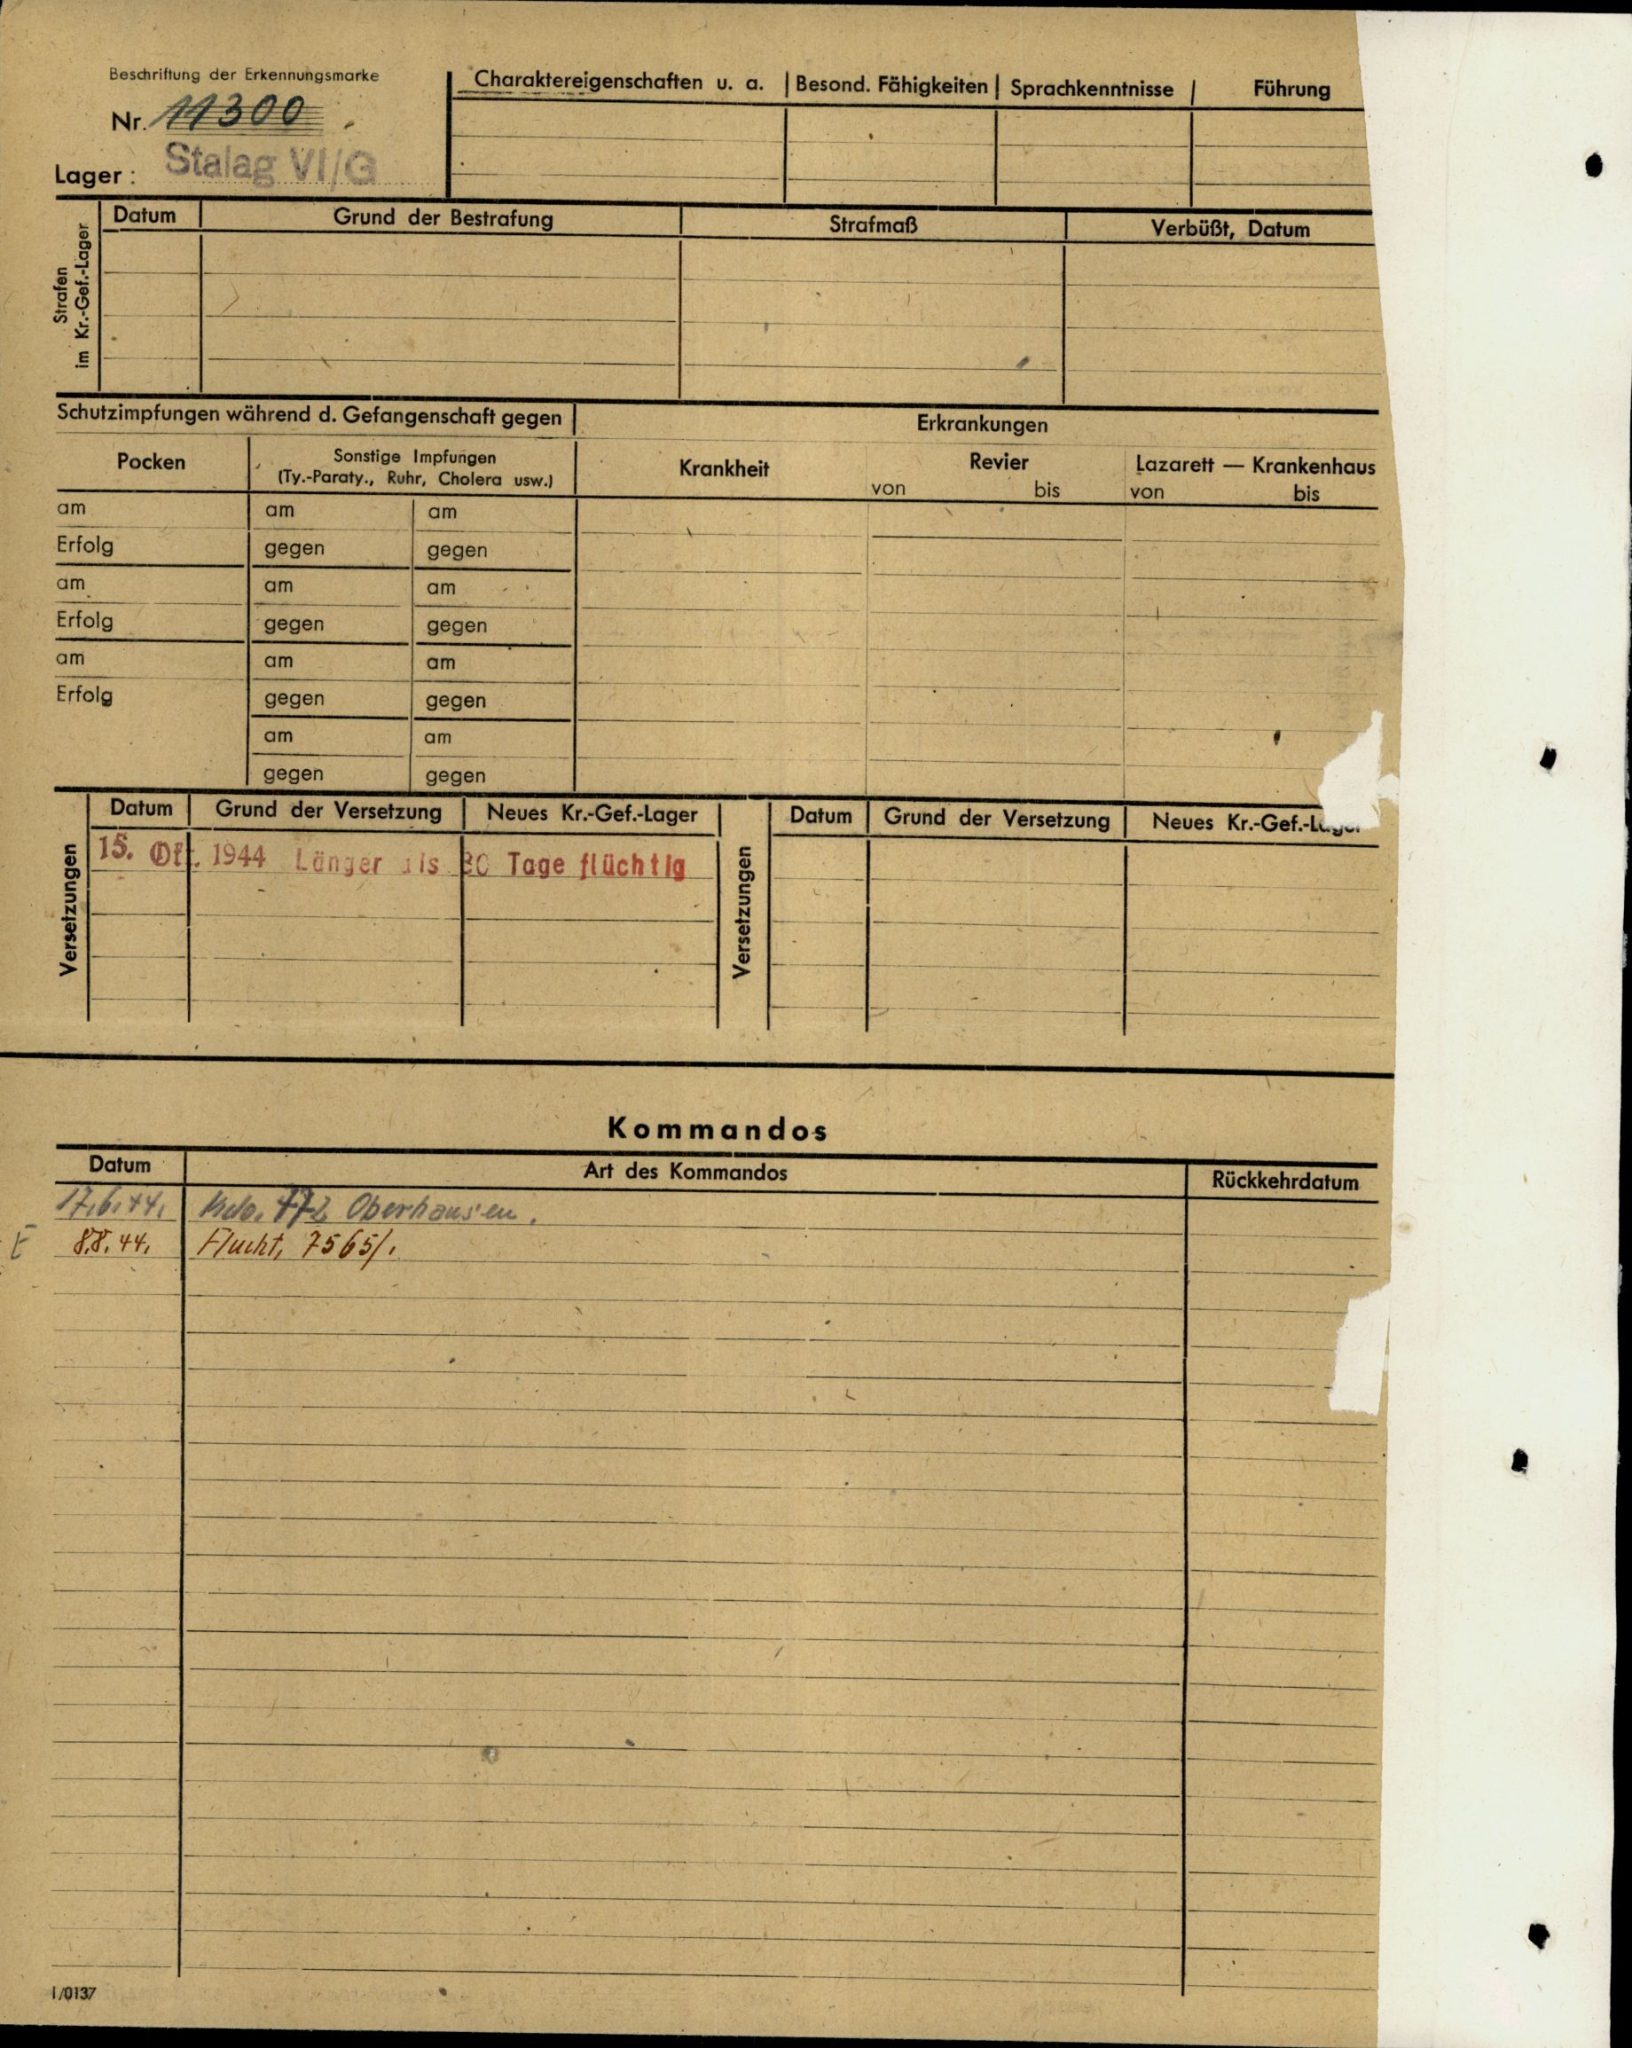 Beschriftung der Erkennungsmarke
Nr. 11300
Lager: Stalag VI/G
Charaktereigenschaften u. a. Besond. Fähigkeiten Sprachkenntnisse Führung
Strafen
im Kr.-Gef.-Lager
Datum Grund der Bestrafung Strafmaß Verbüßt, Datum
Schutzimpfungen während d. Gefangenschaft gegen
Erkrankungen
Pocken
Sonstige Impfungen
(Ty.-Paraty., Ruhr, Cholera usw.)
Krankheit
Revier
von bis
Lazarett — Krankenhaus
von bis
am am am
Erfolg gegen gegen
am am am
Erfolg gegen gegen
am am am
Erfolg gegen gegen
am am
gegen gegen
Versetzungen
Datum Grund der Versetzung Neues Kr.-Gef.-Lager
15. Okt. 1944 Länger als 30 Tage flüchtig
Versetzungen
Datum Grund der Versetzung Neues Kr.-Gef.-Lager
Kommandos
Datum Art des Kommandos Rückkehrdatum
17.6.44. Kdo. 472 Oberhausen.
8.8.44. Flucht, 7565/.
I/0137